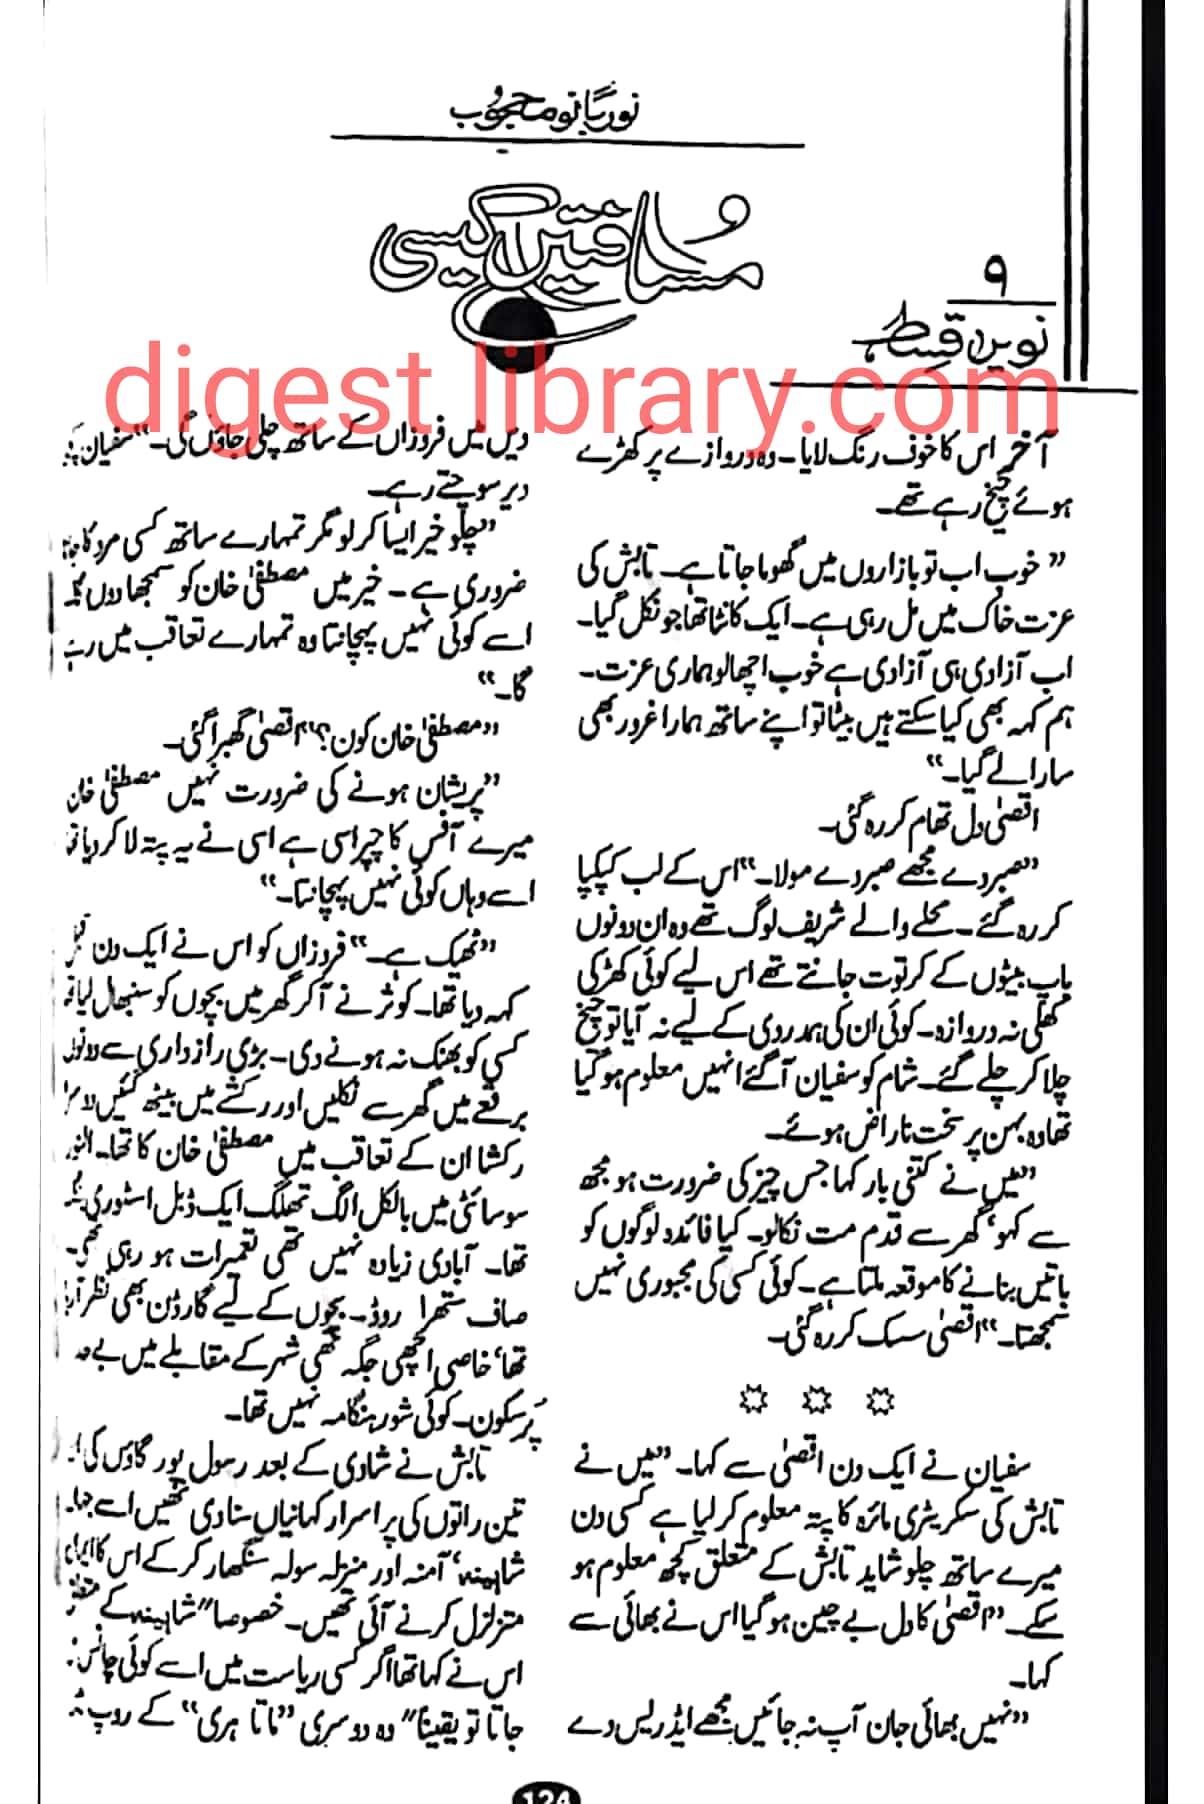 نور بانو محجوب
مسافتیں کیسی
۹
نویں قسط
digest library.com
آخر اس کا خوف رنگ لایا۔ وہ دروازے پر کھڑے
ہوئے چیخ رہے تھے۔
”خوب اب تو بازاروں میں گھوما جاتا ہے۔ تابش کی
عزت خاک میں مل رہی ہے۔ ایک کانٹا تھا جو نکل گیا۔
اب آزادی ہی آزادی ہے خوب اچھالو ہماری عزت۔
ہم کہہ بھی کیا سکتے ہیں بیٹا تو اپنے ساتھ ہمارا غرور بھی
سارا لے گیا۔“
اقصیٰ دل تھام کر رہ گئی۔
”صبر دے مجھے صبر دے مولا۔“ اس کے لب کپکپا
کر رہ گئے۔ محلے والے شریف لوگ تھے وہ ان دونوں
باپ بیٹوں کے کرتوت جانتے تھے اس لیے کوئی کھڑکی
کھلی نہ دروازہ۔ کوئی ان کی ہمدردی کے لیے نہ آیا تو چیخ
چلا کر چلے گئے۔ شام کو سفیان آگئے انہیں معلوم ہو گیا
تھا وہ بہن پر سخت ناراض ہوئے۔
”میں نے کتنی بار کہا جس چیز کی ضرورت ہو مجھ
سے کہو‘ گھر سے قدم مت نکالو۔ کیا فائدہ لوگوں کو
باتیں بنانے کا موقعہ ملتا ہے۔ کوئی کسی کی مجبوری نہیں
سمجھتا۔“ اقصیٰ سسک کر رہ گئی۔
سفیان نے ایک دن اقصیٰ سے کہا۔ ”میں نے
تابش کی سکریٹری مائرہ کا پتہ معلوم کر لیا ہے کسی دن
میرے ساتھ چلو شاید تابش کے متعلق کچھ معلوم ہو
سکے۔“ اقصیٰ کا دل بے چین ہو گیا اس نے بھائی سے
کہا۔
”نہیں بھائی جان آپ نہ جائیں مجھے ایڈریس دے
دیں میں فروزاں کے ساتھ چلی جاؤں گی۔“ سفیان
دیر سوچتے رہے۔
”چلو خیر ایسا کر لو مگر تمہارے ساتھ کسی مرد کا
ضروری ہے۔ خیر میں مصطفیٰ خان کو سمجھا دوں
اسے کوئی نہیں پہچانتا وہ تمہارے تعاقب میں رہے
گا۔“
”مصطفیٰ خان کون؟“ اقصیٰ گھبرا گئی۔
”پریشان ہونے کی ضرورت نہیں مصطفیٰ خان
میرے آفس کا چپراسی ہے اسی نے یہ پتہ لا کر دیا
اسے وہاں کوئی نہیں پہچانتا۔“
”ٹھیک ہے۔“ فروزاں کو اس نے ایک دن قبل
کہہ دیا تھا۔ کوثر نے آکر گھر میں بچوں کو سنبھال لیا
کسی کو بھنک نہ ہونے دی۔ بڑی رازداری سے دونوں
برقعے میں گھر سے نکلیں اور رکشے میں بیٹھ گئیں
رکشا ان کے تعاقب میں مصطفیٰ خان کا تھا۔ النور
سوسائٹی میں بالکل الگ تھلگ ایک ڈبل اسٹوری
تھا۔ آبادی زیادہ نہیں تھی تعمیرات ہو رہی تھی۔
صاف ستھرا روڈ۔ بچوں کے لیے گارڈن بھی نظر
تھا‘ خاصی اچھی جگہ تھی شہر کے مقابلے میں بے حد
پر سکون۔ کوئی شور ہنگامہ نہیں تھا۔
تابش نے شادی کے بعد رسول پور گاؤں کی
تین راتوں کی پراسرار کہانیاں سنا دی تھیں اسے
شاہینہ‘ آمنہ اور منزلہ سولہ سنگھار کرکے اس کا
متزلزل کرنے آئی تھیں۔ خصوصاً شاہینہ کے متعلق
اس نے کہا تھا اگر کسی ریاست میں اسے کوئی چانس
جاتا تو یقیناً وہ دوسری ”ماتا ہری“ کے روپ